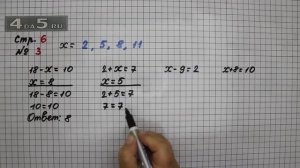 4DA5.RU
Стр. 6
№ 3 x = 2, 5, 8, 11
18 - x = 10 2 + x = 7 x - 9 = 2 x + 8 = 10
x = 8 x = 5
18 - 8 = 10 2 + 5 = 7
10 = 10 7 = 7
Ответ: 8